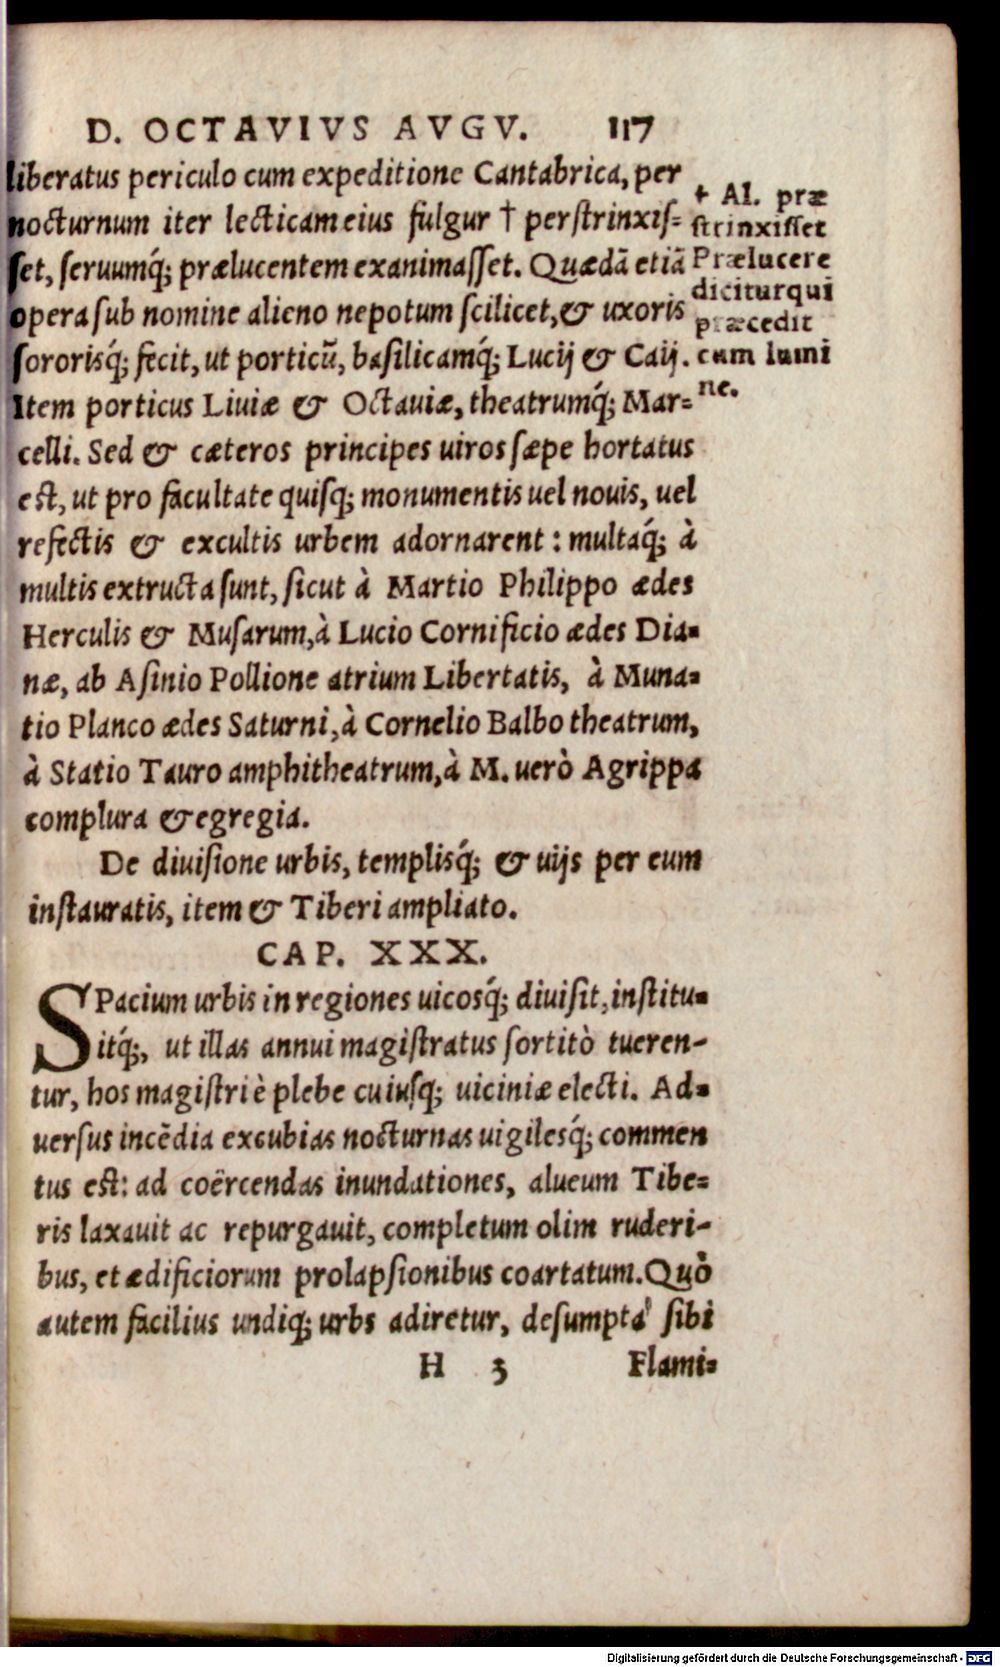 D. OCTAVIVS AVGV. 117
liberatus periculo cum expeditione Cantabrica, per
nocturnum iter lecticam eius fulgur † perstrinxis-
set, seruumq́; prælucentem exanimasset. Quædã etiã
opera sub nomine alieno nepotum scilicet, & uxoris
sororisq́; fecit, ut porticũ, basilicamq́; Lucij & Caij.
Item porticus Liuiæ & Octauiæ, theatrumq́; Mar-
celli. Sed & cæteros principes uiros sæpe hortatus
est, ut pro facultate quisq; monumentis uel nouis, uel
refectis & excultis urbem adornarent : multaq́; à
multis extructa sunt, sicut à Martio Philippo ædes
Herculis & Musarum, à Lucio Cornificio ædes Dia-
næ, ab Asinio Pollione atrium Libertatis, à Muna-
tio Planco ædes Saturni, à Cornelio Balbo theatrum,
à Statio Tauro amphitheatrum, à M. uerò Agrippa
complura & egregia.
† Al. præ
strinxisset
Prælucere
dicitur qui
præcedit
cum lumi
ne.
De diuisione urbis, templisq́; & uijs per eum
instauratis, item & Tiberi ampliato.
CAP. XXX.
SPacium urbis in regiones uicosq́; diuisit, institu-
itq́;, ut illas annui magistratus sortitò tueren-
tur, hos magistri è plebe cuiusq; uiciniæ electi. Ad-
uersus incẽdia excubias nocturnas uigilesq́; commen
tus est: ad coërcendas inundationes, alueum Tibe-
ris laxauit ac repurgauit, completum olim ruderi-
bus, et ædificiorum prolapsionibus coartatum. Quò
autem facilius undiq; urbs adiretur, desumpta sibi
H 3 Flami-
Digitalisierung gefördert durch die Deutsche Forschungsgemeinschaft - DFG